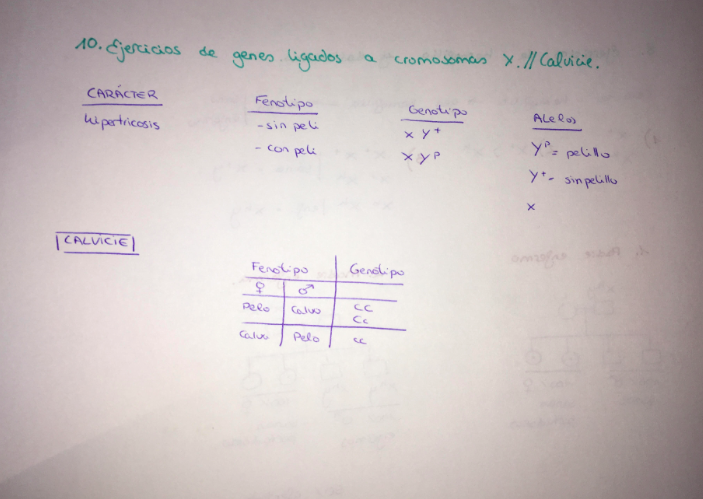 10. Ejercicios de genes ligados a cromosomas X. // Calvicie.
CARÁCTER Fenotipo Genotipo Alelos
hipertricosis - sin peli X Y⁺ Yᴾ = pelillo
- con peli X Yᴾ Y⁺ - sin pelillo
X
CALVICIE
Fenotipo Genotipo
♀ ♂
Pelo Calvo CC
Cc
Calvo Pelo cc